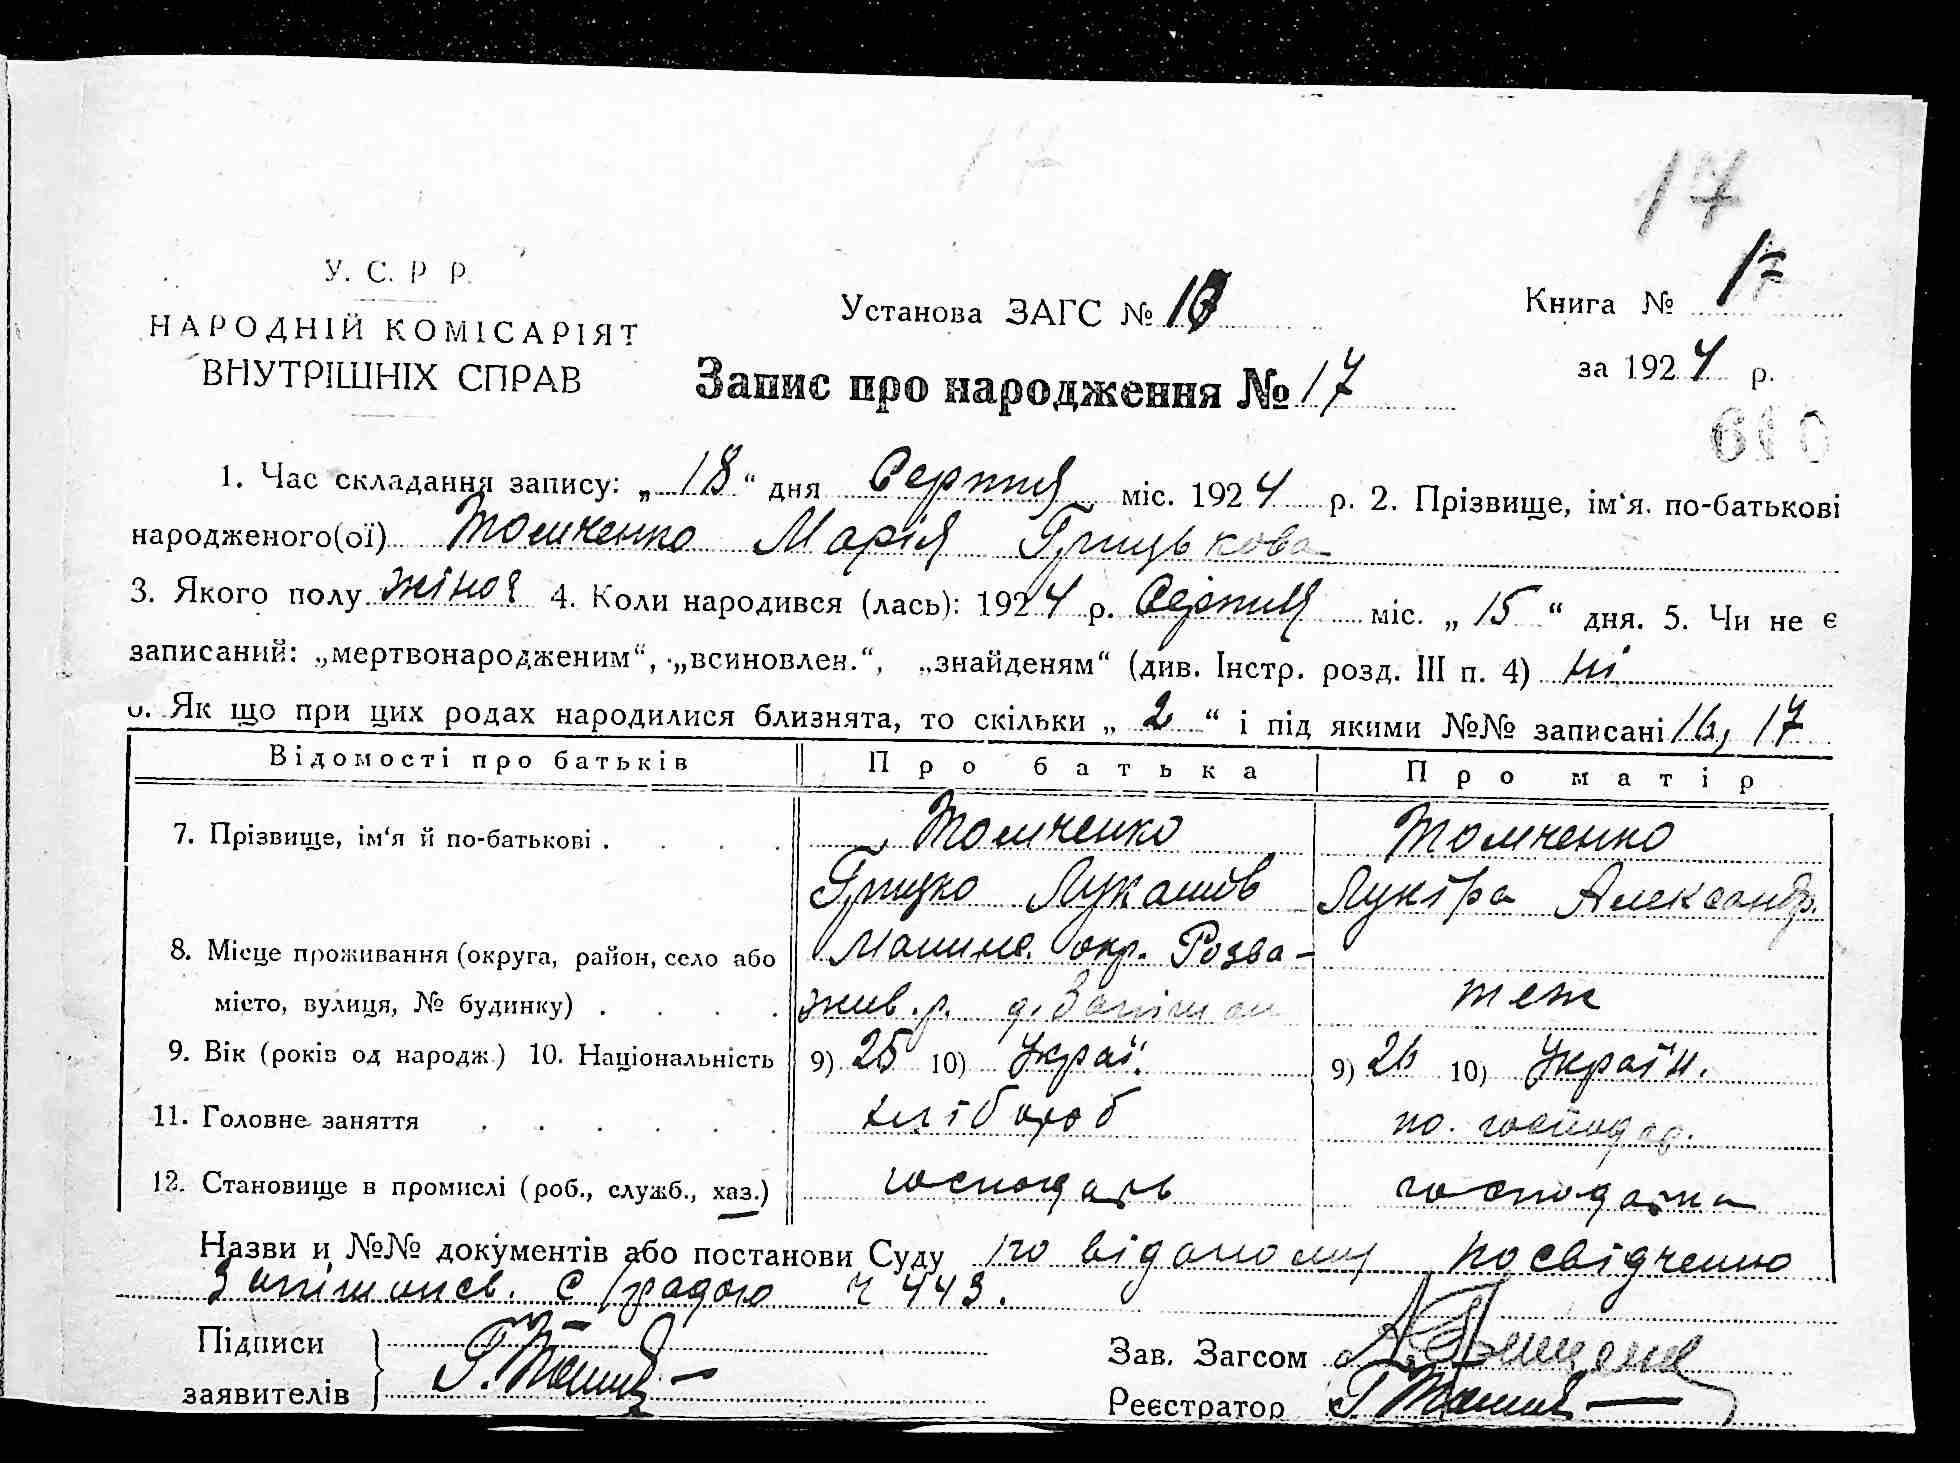 17
17
У. С. Р Р.
НАРОДНІЙ КОМІСАРІЯТ
ВНУТРІШНІХ СПРАВ
Установа ЗАГС №
Книга № 17
за 1924 р.
Запис про народження № 17
610
1. Час складання запису: „18“ дня Серпня міс. 1924 р. 2. Прізвище, ім‘я. по-батькові
народженого(ої) Томченко Марія Грицькова
3. Якого полу жіноч 4. Коли народився (лась): 1924 р. Серпня міс. „15“ дня. 5. Чи не є
записаний: „мертвонародженим“, „всиновлен.“, „знайденям“ (див. Інстр. розд. III п. 4) ні
6. Як що при цих родах народилися близнята, то скільки „2“ і під якими №№ записані 16, 17
Відомості про батьків Про батька Про матір
7. Прізвище, ім‘я й по-батькові . . . . . Томченко Томченко
Грицко Лукашів Лукіра Александр.
8. Місце проживання (округа, район, село або Малинс. окр. Розва-
місто, вулиця, № будинку) . . . . жив. р. д. Запішан теж
9. Вік (років од народж.) 10. Національність 9) 25 10) Украї. 9) 26 10) Україн.
11. Головне заняття . . . . . . хлібороб по. господар.
12. Становище в промислі (роб., служб., хаз.) господарь господарка
Назви и №№ документів або постанови Суду по віданому посвідченню
Запішанск. С/радою Ч 443.
Підписи
заявителів
Зав. Загсом
Реєстратор